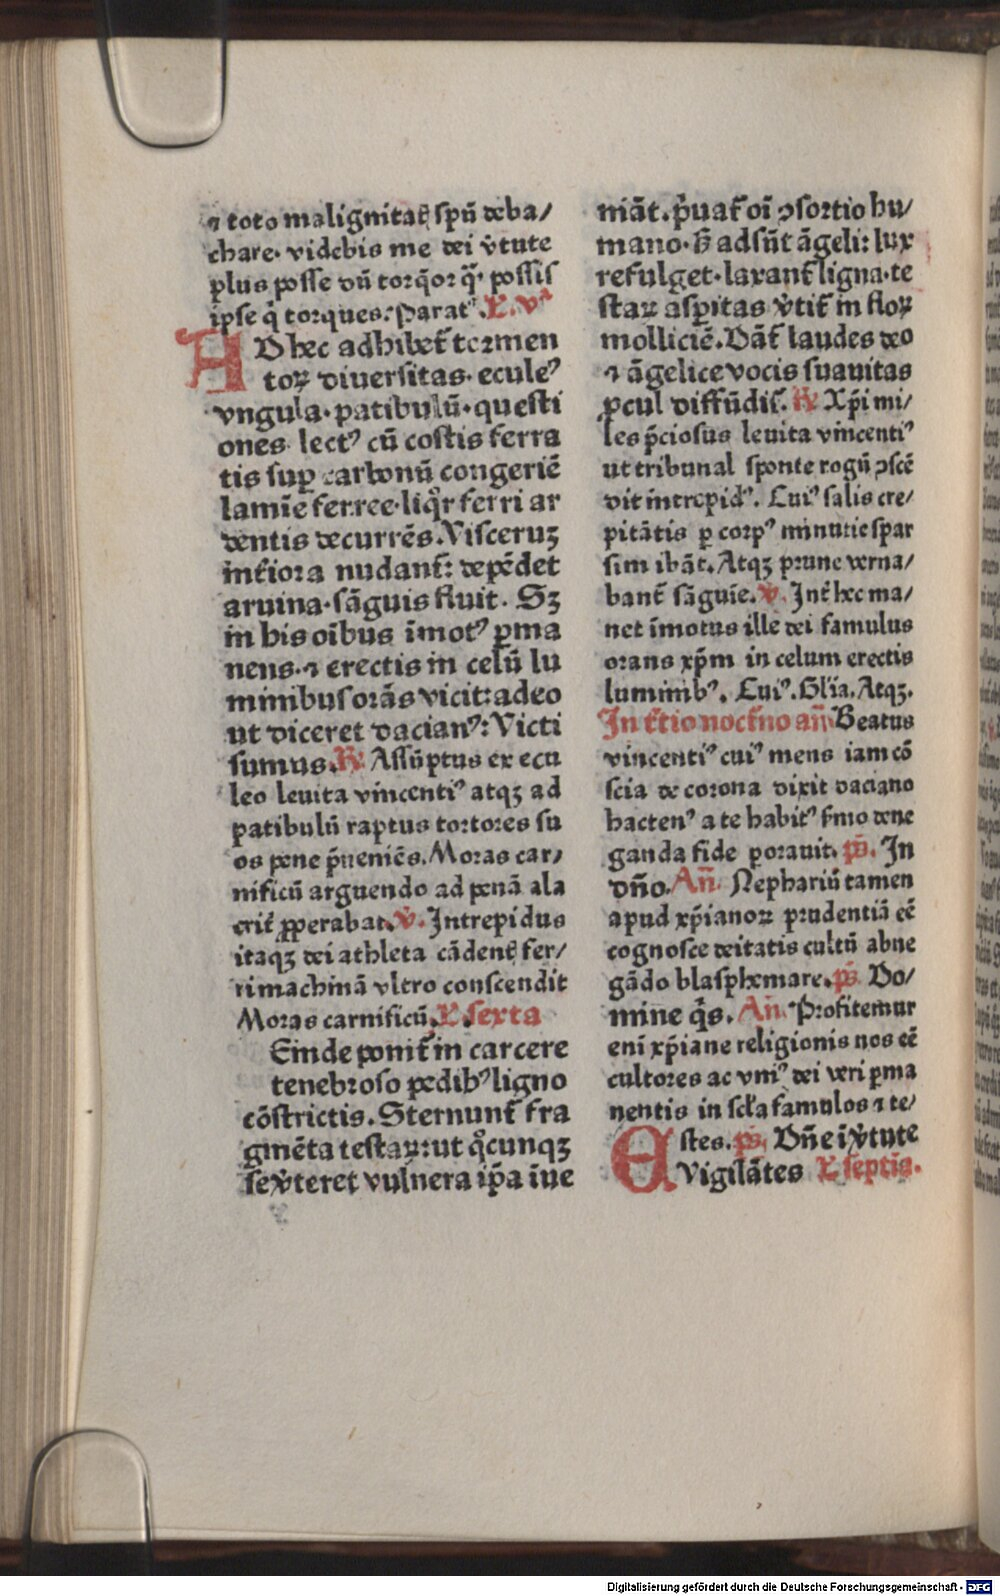 ⁊ toto malignitat͛ spū deba/
chare· videbis me dei v̄tute
plus posse dū torq̄or q̄· possis
ipse q̄ torques: Parat᷒. L. vᵃ
AD hec adhibet̄ tormen
toꝝ diuersitas· ecule᷒
vngula· patibulū· questi
ones lect᷒ cū costis ferra
tis suꝑ carbonū congeriē
lamīe ferree· liq̊r ferri ar
dentis decurrēs. Visceruꝫ
int̄iora nudant̄: depēdet
aruina· sāguis fluit. Sꝫ
in his oībus īmot᷒ ꝑma
nens· ⁊ erectis in celū lu
minibus orās vicit: adeo
ut diceret dacian᷒: Victi
sumus. R̄ Assūptus ex ecu
leo leuita vincenti᷒ atqꝫ ad
patibulū raptus tortores su
os pene p̄ueniēs. Moras car/
nificū arguendo ad penā ala
crit̄ ꝓperabat. v̄. Intrepidus
itaqꝫ dei athleta cādent͛ fer/
ri machinā vltro conscendit
Moras carnificū. L. sexta
Einde ponit̄ in carcere
tenebroso pedib᷒ ligno
cōstrictis. Sternunt̄ fra
gmēta testaꝝ: ut q̊cunqꝫ
se v̄teret vulnera ip̄a iūe
niāt. p̄uat̄ oī ɔsortio hu/
mano· ß adsūt āgeli: lux
refulget· laxant̄ ligna· te
staꝝ asꝑitas v̄tit̄ in floꝝ
molliciē. Dāt̄ laudes deo
⁊ āgelice vocis suauitas
ꝓcul diffūdit̄. R̄ Xp̄i mi/
les p̄ciosus leuita vincenti᷒
ut tribunal sponte rogū ɔscē
dit intrepid᷒. Cui᷒ salis cre/
pitātis ꝑ corp᷒ minutie spar
sim ibāt. Atqꝫ prune verna/
bant̄ sāguīe. v̄. Int̄ hec ma/
net īmotus ille dei famulus
orans xp̄m in celum erectis
luminib᷒. Cui᷒. Gl̄ia. Atqꝫ.
In t̄tio noct̄no an̄ Beatus
vincenti᷒ cui᷒ mens iam cō
scia de corona dixit daciano
hacten᷒ a te habit᷒ s̄mo dene
ganda fide ꝑorauit. ps̄. In
dn̄o. An̄. Nephariū tamen
apud xp̄ianoꝝ prudentiā eē
cognosce deitatis cultū abne
gādo blasphemare. ps̄. Do/
mine q̄s. An̄. Profitemur
enī xp̄iane religionis nos eē
cultores ac vni᷒ dei veri ꝑma
nentis in scl̄a famulos ⁊ te/
stes. ps̄. Dn̄e i v̄tute
EVigilātes L septīa.
Digitalisierung gefördert durch die Deutsche Forschungsgemeinschaft - DFG